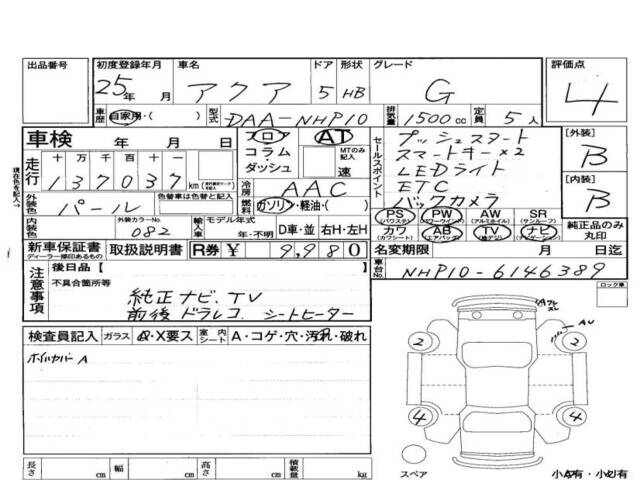 出品番号 初度登録年月 車名 ドア 形状 グレード 評価点
25年 月 アクア 5 HB G 4
車歴 自家用・( ) 型式 DAA-NHP10 排気量 1500cc 定員 5人
車検 年 月 日 フロア AT セールスポイント プッシュスタート [外装]
コラム・ダッシュ MTのみ記入 速 スマートキー×2 B
走行 十 万 千 百 十 一 LEDライト
137037 km 冷房 AAC ETC [内装]
現在色を記入→ 外装色 パール 色替車は色替と記入 燃料 ガソリン・軽油・( ) バックカメラ B
PS (パワステ) PW (パワーウインド) AW (アルミホイル) SR (サンルーフ)
内装色 外装カラーNo. 082 輸入車 モデル年式 年・不明 D車・並 右H・左H カワ (カワシート) AB (エアバッグ) TV (純テレ) ナビ (ナビゲーション) 純正品のみ丸印
新車保証書 ディーラー捺印あるもの 取扱説明書 R券 ¥ 9,980 名変期限 月 日迄
注意事項 後日品【 】 車台No. NHP10-6146389
不具合箇所等 ロック車
純正ナビ.TV
前後ドラレコ シートヒーター
検査員記入 ガラス A・X要ス 室内シート A・コゲ・穴・汚れ・破れ
ホイルカバーA
Aフレ
AU
2 2
4 4
スペア
長さ cm 幅 cm 高さ cm 積載量 kg 小A有・小U有